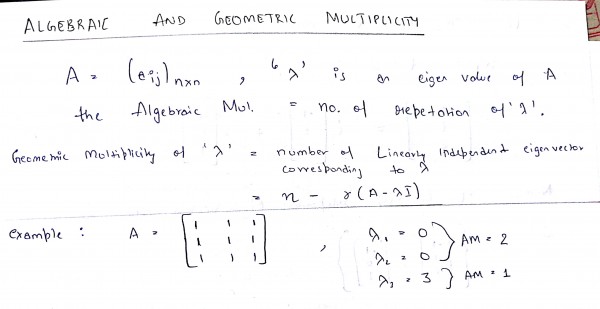 ALGEBRAIC AND GEOMETRIC MULTIPLICITY
A = (aij)nxn , 'λ' is an eigen value of A
the Algebraic Mul. = no. of repetation of 'λ'.
Geometric Multiplicity of 'λ' = number of Linearly Independent eigen vector
corresponding to λ
= n - r(A - λI)
example : A = [1 1 1 , λ1 = 0 } AM = 2
1 1 1 λ2 = 0
1 1 1] λ3 = 3 } AM = 1